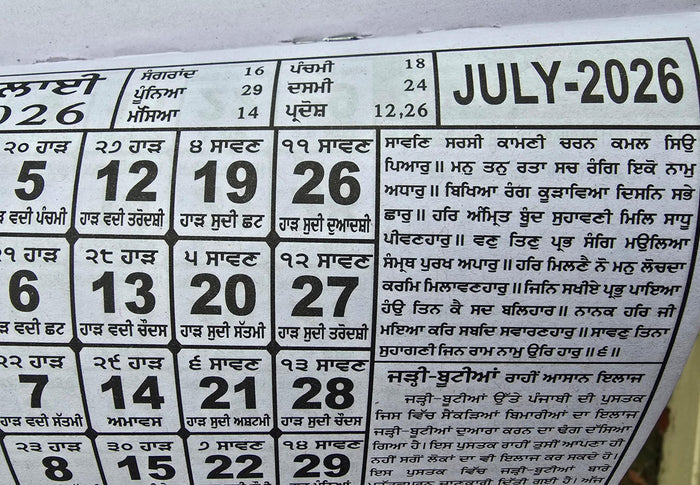 ਸੰਗਰਾਂਦ 16
ਪੂੰਨਿਆ 29
ਮੱਸਿਆ 14
ਪੰਚਮੀ 18
ਦਸਮੀ 24
ਪ੍ਰਦੋਸ਼ 12,26
JULY-2026
੨੦ ਹਾੜ ੨੭ ਹਾੜ ੪ ਸਾਵਣ ੧੧ ਸਾਵਣ
5 12 19 26
ਹਾੜ ਵਦੀ ਪੰਚਮੀ ਹਾੜ ਵਦੀ ਤਰੋਦਸ਼ੀ ਹਾੜ ਸੁਦੀ ਛਟ ਹਾੜ ਸੁਦੀ ਦੁਆਦਸ਼ੀ
੨੧ ਹਾੜ ੨੮ ਹਾੜ ੫ ਸਾਵਣ ੧੨ ਸਾਵਣ
6 13 20 27
ਹਾੜ ਵਦੀ ਛਟ ਹਾੜ ਵਦੀ ਚੌਦਸ ਹਾੜ ਸੁਦੀ ਸੱਤਮੀ ਹਾੜ ਸੁਦੀ ਤਰੋਦਸ਼ੀ
੨੨ ਹਾੜ ੨੯ ਹਾੜ ੬ ਸਾਵਣ ੧੩ ਸਾਵਣ
7 14 21 28
ਹਾੜ ਵਦੀ ਸੱਤਮੀ ਅਮਾਵਸ ਹਾੜ ਸੁਦੀ ਅਸ਼ਟਮੀ ਹਾੜ ਸੁਦੀ ਚੌਦਸ
੨੩ ਹਾੜ ੩੦ ਹਾੜ ੭ ਸਾਵਣ ੧੪ ਸਾਵਣ
8 15 22 29
ਸਾਵਣਿ ਸਰਸੀ ਕਾਮਣੀ ਚਰਨ ਕਮਲ ਸਿਉ
ਪਿਆਰੁ॥ ਮਨੁ ਤਨੁ ਰਤਾ ਸਚ ਰੰਗਿ ਇਕੋ ਨਾਮੁ
ਅਧਾਰੁ॥ ਬਿਖਿਆ ਰੰਗ ਕੂੜਾਵਿਆ ਦਿਸਨਿ ਸਭੇ
ਛਾਰੁ॥ ਹਰਿ ਅੰਮ੍ਰਿਤ ਬੂੰਦ ਸੁਹਾਵਣੀ ਮਿਲਿ ਸਾਧੂ
ਪੀਵਣਹਾਰੁ॥ ਵਣੁ ਤਿਣੁ ਪ੍ਰਭ ਸੰਗਿ ਮਉਲਿਆ
ਸੰਮ੍ਰਥ ਪੁਰਖ ਅਪਾਰੁ॥ ਹਰਿ ਮਿਲਣੈ ਨੋ ਮਨੁ ਲੋਚਦਾ
ਕਰਮਿ ਮਿਲਾਵਣਹਾਰੁ॥ ਜਿਨਿ ਸਖੀਏ ਪ੍ਰਭੁ ਪਾਇਆ
ਹੰਉ ਤਿਨ ਕੈ ਸਦ ਬਲਿਹਾਰ॥ ਨਾਨਕ ਹਰਿ ਜੀ
ਮਇਆ ਕਰਿ ਸਬਦਿ ਸਵਾਰਣਹਾਰੁ॥ ਸਾਵਣੁ ਤਿਨਾ
ਸੁਹਾਗਣੀ ਜਿਨ ਰਾਮ ਨਾਮੁ ਉਰਿ ਹਾਰੁ॥੬॥
ਜੜ੍ਹੀ-ਬੂਟੀਆਂ ਰਾਹੀਂ ਆਸਾਨ ਇਲਾਜ
ਜੜ੍ਹੀ-ਬੂਟੀਆਂ ਉੱਤੇ ਪੰਜਾਬੀ ਦੀ ਪੁਸਤਕ
ਜਿਸ ਵਿੱਚ ਸੈਂਕੜਿਆਂ ਬਿਮਾਰੀਆਂ ਦਾ ਇਲਾਜ
ਜੜ੍ਹੀ-ਬੂਟੀਆਂ ਦੁਆਰਾ ਕਰਨ ਦਾ ਢੰਗ ਦੱਸਿਆ
ਗਿਆ ਹੈ। ਇਸ ਪੁਸਤਕ ਰਾਹੀਂ ਤੁਸੀਂ ਆਪਣਾ ਹੀ
ਨਹੀਂ ਸਗੋਂ ਲੋਕਾਂ ਦਾ ਵੀ ਇਲਾਜ ਕਰ ਸਕਦੇ ਹੋ।
ਇਸ ਪੁਸਤਕ ਵਿੱਚ ਜੜ੍ਹੀ-ਬੂਟੀਆਂ ਬਾਰੇ
ਜਾਣਕਾਰੀ ਦਿੱਤੀ ਗਈ ਹੈ। ਅੱਜ